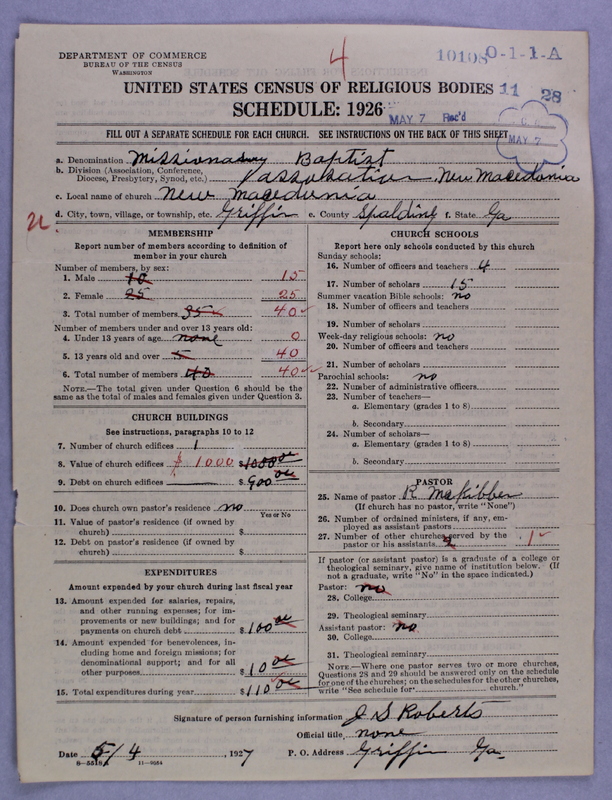 4
10108 0-1-1-A
DEPARTMENT OF COMMERCE
BUREAU OF THE CENSUS
WASHINGTON
UNITED STATES CENSUS OF RELIGIOUS BODIES 11 28
SCHEDULE: 1926
MAY 7 Rec'd
FILL OUT A SEPARATE SCHEDULE FOR EACH CHURCH. SEE INSTRUCTIONS ON THE BACK OF THIS SHEET
MAY 7
a. Denomination Missionary Baptist
b. Division (Association, Conference,
Diocese, Presbytery, Synod, etc.) New Macedonia
c. Local name of church New Macedonia
d. City, town, village, or township, etc. Griffin e. County Spalding f. State Ga
MEMBERSHIP
Report number of members according to definition of
member in your church
Number of members, by sex:
1. Male 10 15
2. Female 25 25
3. Total number of members 35 40
Number of members under and over 13 years old:
4. Under 13 years of age none 0
5. 13 years old and over 5 40
6. Total number of members 40 40
NOTE.—The total given under Question 6 should be the
same as the total of males and females given under Question 3.
CHURCH BUILDINGS
See instructions, paragraphs 10 to 12
7. Number of church edifices 1
8. Value of church edifices $ 1000 $1000 00
9. Debt on church edifices $900 00
10. Does church own pastor's residence no
Yes or No
11. Value of pastor's residence (if owned by
church) $
12. Debt on pastor's residence (if owned by
church) $
EXPENDITURES
Amount expended by your church during last fiscal year
13. Amount expended for salaries, repairs,
and other running expenses; for im-
provements or new buildings; and for
payments on church debt $100 00
14. Amount expended for benevolences, in-
cluding home and foreign missions; for
denominational support; and for all
other purposes $10 00
15. Total expenditures during year $110 00
CHURCH SCHOOLS
Report here only schools conducted by this church
Sunday schools:
16. Number of officers and teachers 4
17. Number of scholars 15
Summer vacation Bible schools: no
18. Number of officers and teachers
19. Number of scholars
Week-day religious schools: no
20. Number of officers and teachers
21. Number of scholars
Parochial schools: no
22. Number of administrative officers
23. Number of teachers—
a. Elementary (grades 1 to 8)
b. Secondary
24. Number of scholars—
a. Elementary (grades 1 to 8)
b. Secondary
PASTOR
25. Name of pastor R McKibben
(If church has no pastor, write "None")
26. Number of ordained ministers, if any, em-
ployed as assistant pastors
27. Number of other churches served by the
pastor or his assistants 2 1
If pastor (or assistant pastor) is a graduate of a college or
theological seminary, give name of institution below. (If
not a graduate, write "No" in the space indicated.)
Pastor: no
28. College
29. Theological seminary
Assistant pastor: no
30. College
31. Theological seminary
NOTE.—Where one pastor serves two or more churches,
Questions 28 and 29 should be answered only on the schedule
for one of the churches; on the schedules for the other churches,
write "See schedule for church."
Signature of person furnishing information J S Roberts
Official title, none
Date 5/4, 1927 P. O. Address Griffin Ga
8—5518A 11—9084